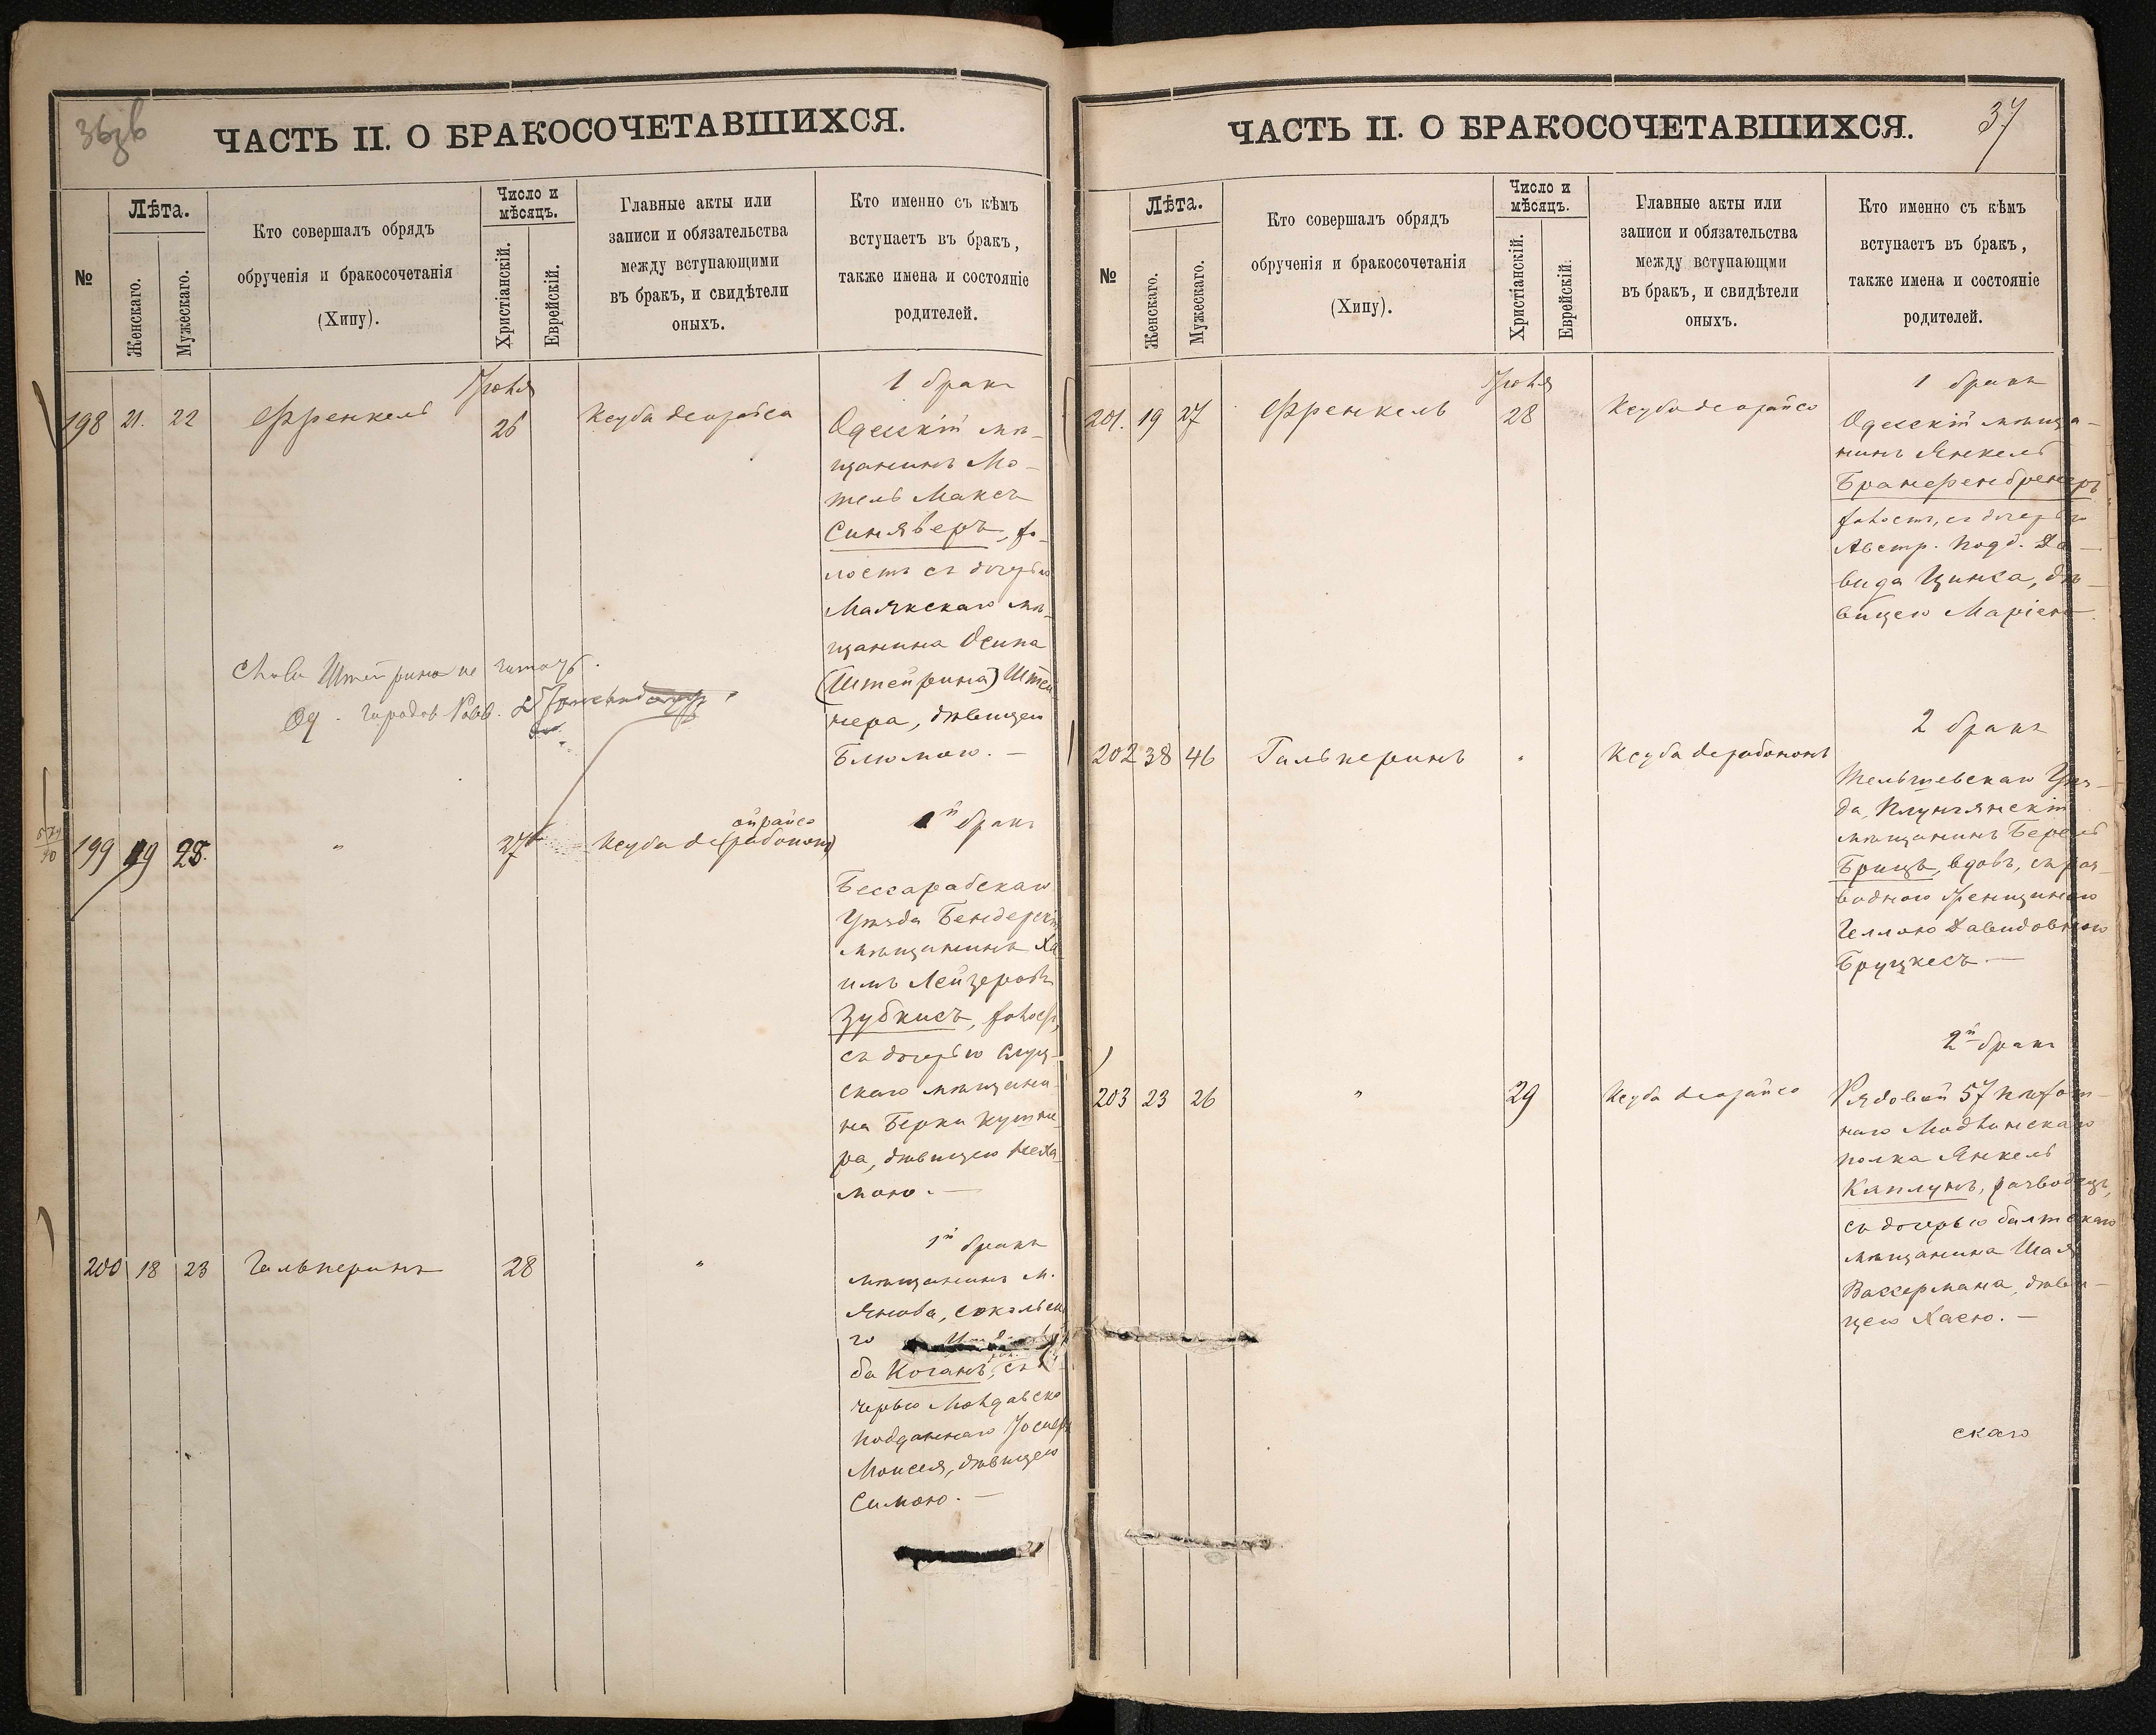 36 зв
ЧАСТЬ II. О БРАКОСОЧЕТАВШИХСЯ.
№
Лѣта.
Женскаго.
Мужескаго.
Кто совершалъ обрядъ
обрученія и бракосочетанія
(Хипу).
Число и
мѣсяцъ.
Христіанскій.
Еврейскій.
Главные акты или
записи и обязательства
между вступающими
въ бракъ, и свидѣтели
оныхъ.
Кто именно съ кѣмъ
вступаетъ въ бракъ,
также имена и состояніе
родителей.
Іюня
1 бракъ
198 21. 22 Френкель 26 Ксуба деорайса
Одесскій мѣ-
щанинъ Мо-
тель Максъ
Синяверъ, хо-
лостъ съ дочерью
Маякскаго мѣ-
щанина Осипа
(Штейрина) Штей
нера, дѣвицею
Блюмою. —
Слова Штейрина не читать.
Од. Городов. Равв.
1й бракъ
199 19 25. " 27 Ксуба де(рабонон)
ойрайсо
Бессарабскаго
Уѣзда Бендерскій
мѣщанинъ Ха
имъ Лейзеровъ
Зубкисъ, холостъ,
съ дочерью Слуц-
скаго мѣщани
на Берки Кушни
ра, дѣвицею Неха
мою. —
1й бракъ
200 18 23 Гальперинъ 28 "
мѣщанинъ м.
Янова, Сокольска
го
ба Коганъ, съ
черью Молдавско
подданнаго Іосифа
Моисея, дѣвицею
Симою. —
37
ЧАСТЬ II. О БРАКОСОЧЕТАВШИХСЯ.
№
Лѣта.
Женскаго.
Мужескаго.
Кто совершалъ обрядъ
обрученія и бракосочетанія
(Хипу).
Число и
мѣсяцъ.
Христіанскій.
Еврейскій.
Главные акты или
записи и обязательства
между вступающми
въ бракъ, и свидѣтели
оныхъ.
Кто именно съ кѣмъ
вступаетъ въ бракъ,
также имена и состояніе
родителей.
Іюня
1 бракъ
201. 19 27 Френкель 28 Ксуба деорайсо
Одесскій мѣща-
нинъ Янкель
Бранфенбренеръ
холостъ, съ дочерью
Австр. Подд. Да-
вида Цинка, дѣ-
вицею Маріею.
2 бракъ
202 38 46 Гальперинъ " Ксуба дерабононъ
Тельшевскаго Уѣз-
да, Плунгянскій
мѣщанинъ Берель
Брицъ, вдовъ, съ раз-
водною женщиною
Геллою Давидовною
Бруцкесъ —
2й бракъ
203 23 26 " 29 Ксуба деорайсо
Рядовой 57 пѣхот-
наго Модлинскаго
полка Янкель
Каплунъ, разводецъ,
съ дочерью балтскаго
мѣщанина Шая
Вассермана, дѣви-
цею Хаею. —
скаго